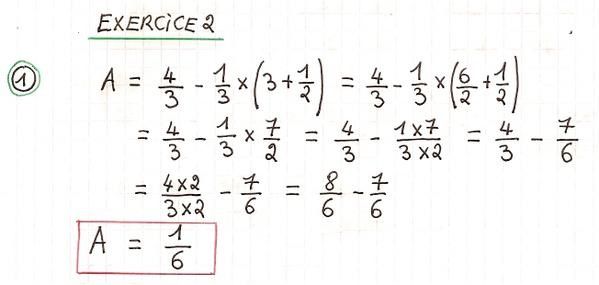 EXERCICE 2
① A = 4/3 - 1/3 × (3 + 1/2) = 4/3 - 1/3 × (6/2 + 1/2)
= 4/3 - 1/3 × 7/2 = 4/3 - 1×7/3×2 = 4/3 - 7/6
= 4×2/3×2 - 7/6 = 8/6 - 7/6
A = 1/6